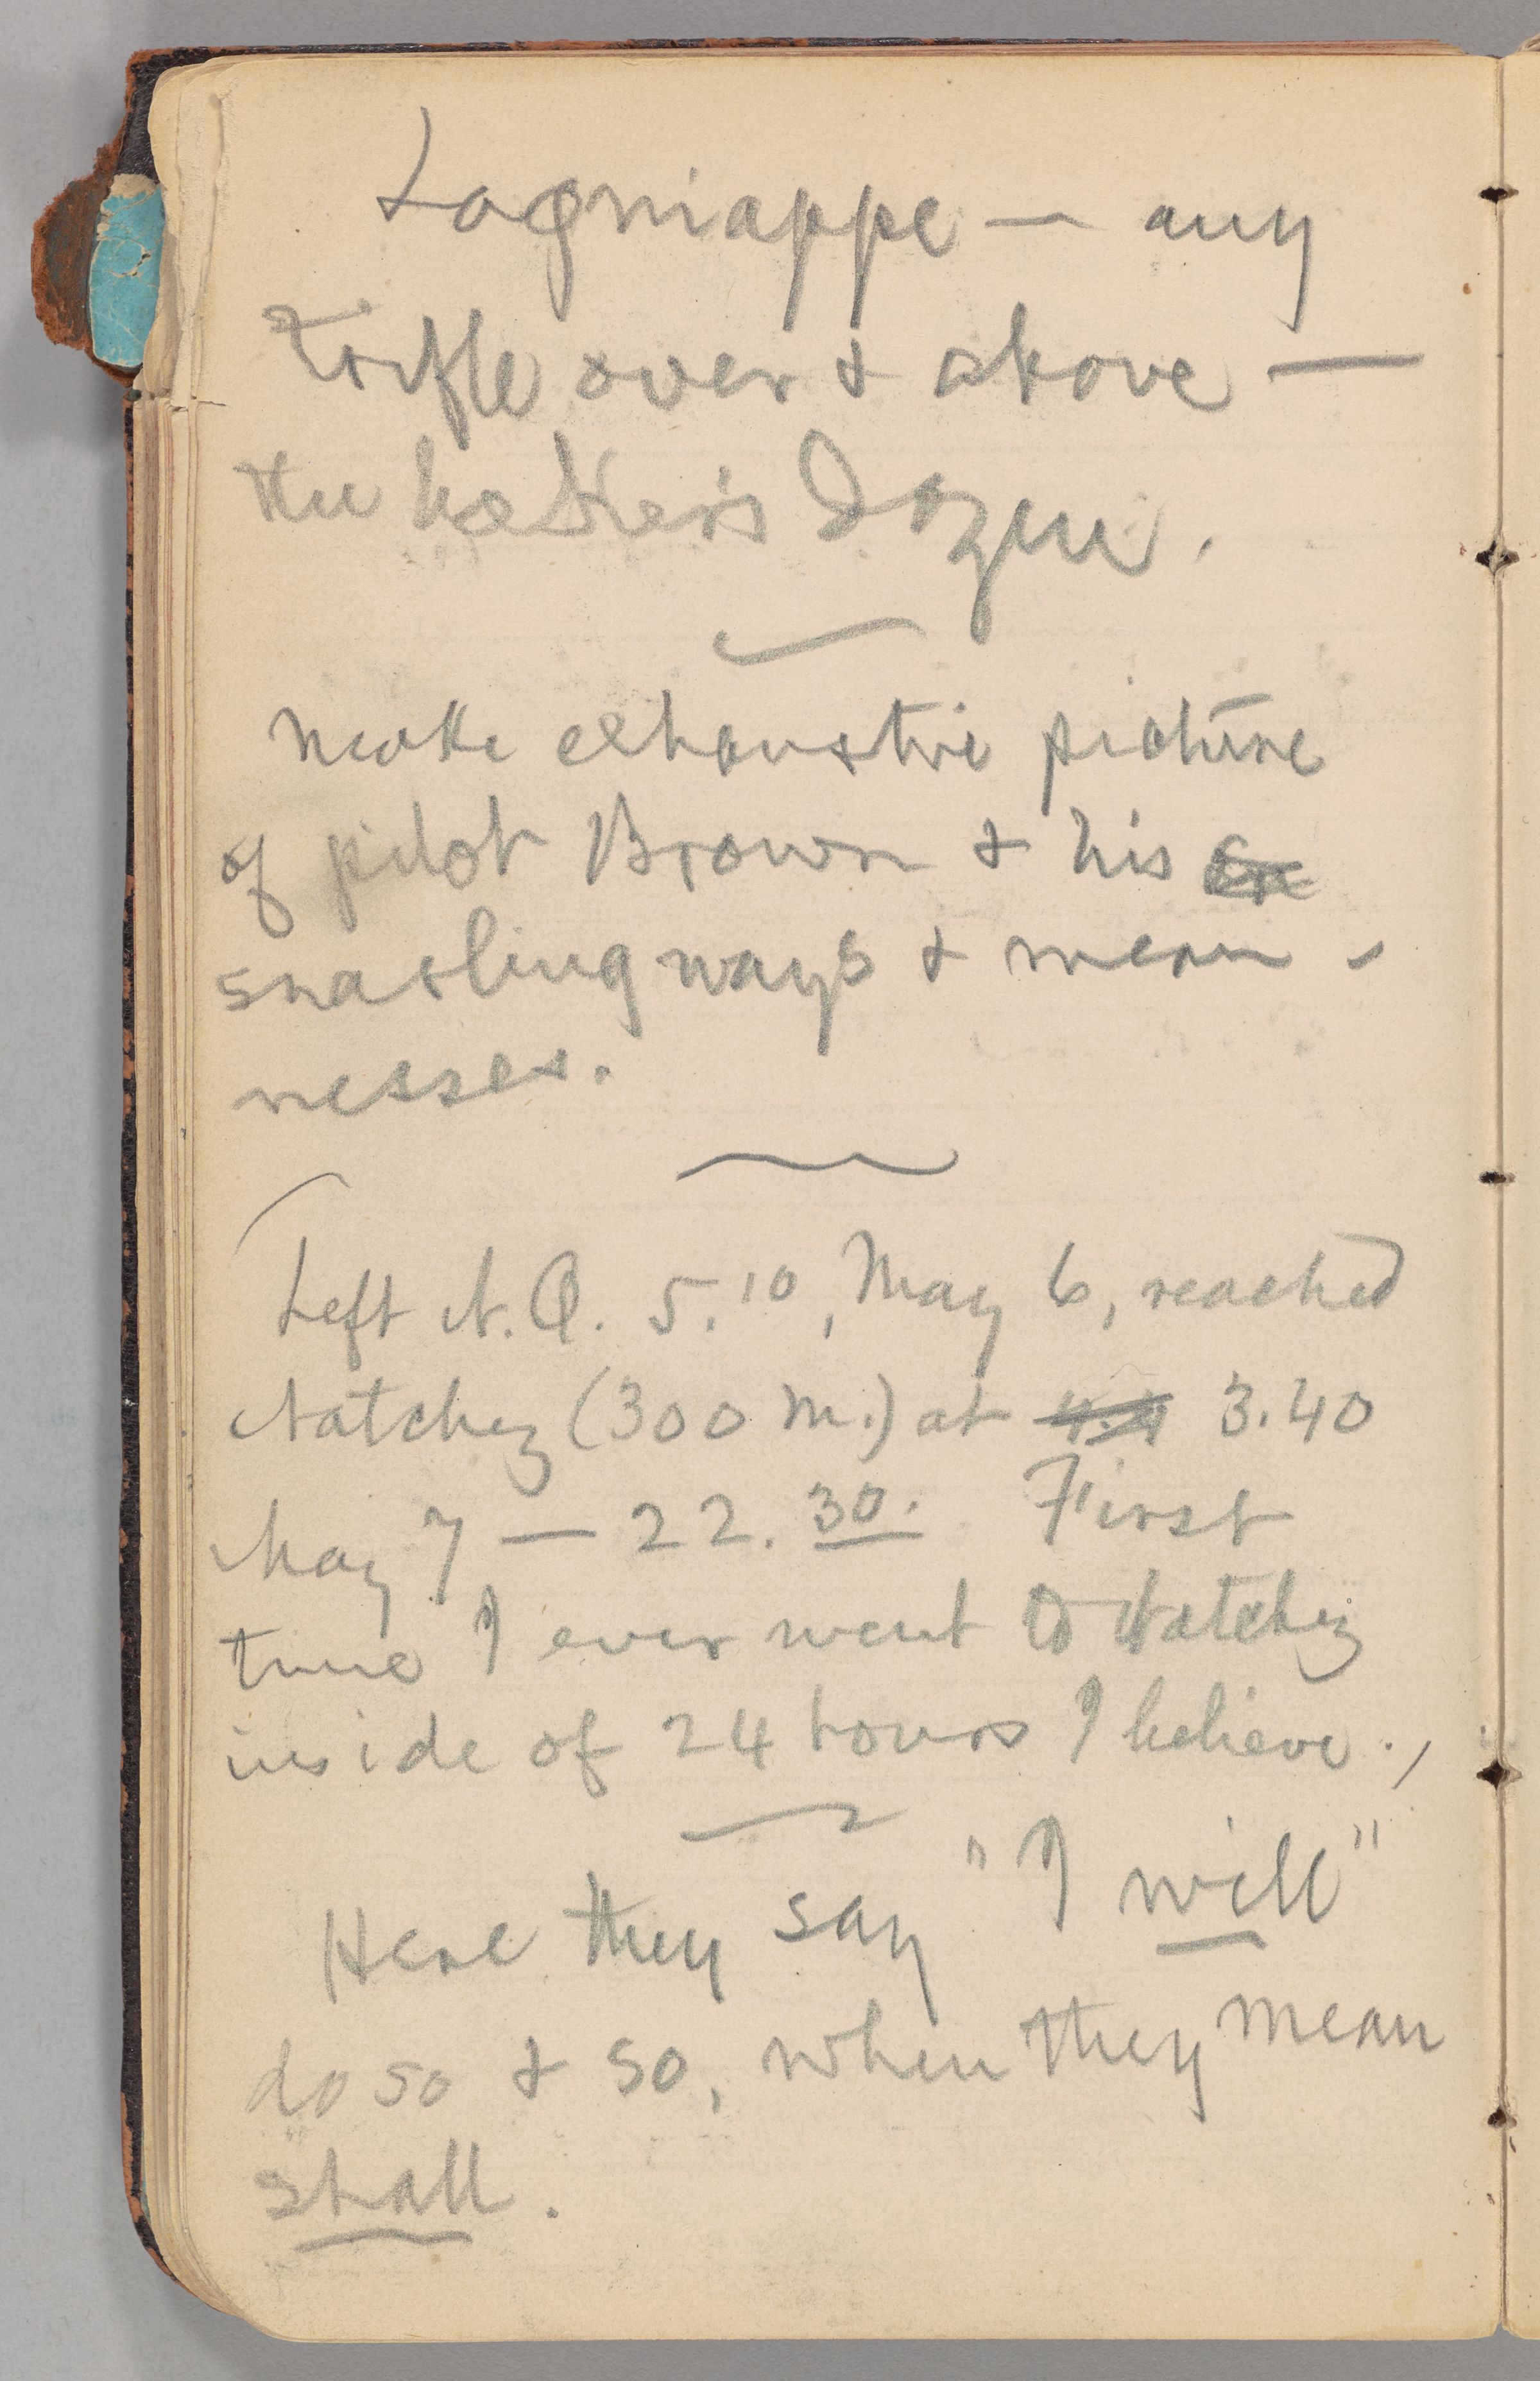 Lagniappe — any
trifle over & above —
the baker's dozen.
Make exhaustive picture
of pilot Brown & his
snarling ways & mean-
nesses.
Left N.O. 5.10, May 6, reached
Natchez (300 m.) at 4.4 3.40
May 7 — 22.30. First
time I ever went to Natchez
inside of 24 hours I believe.
Here they say "I will"
do so & so, when they mean
shall.